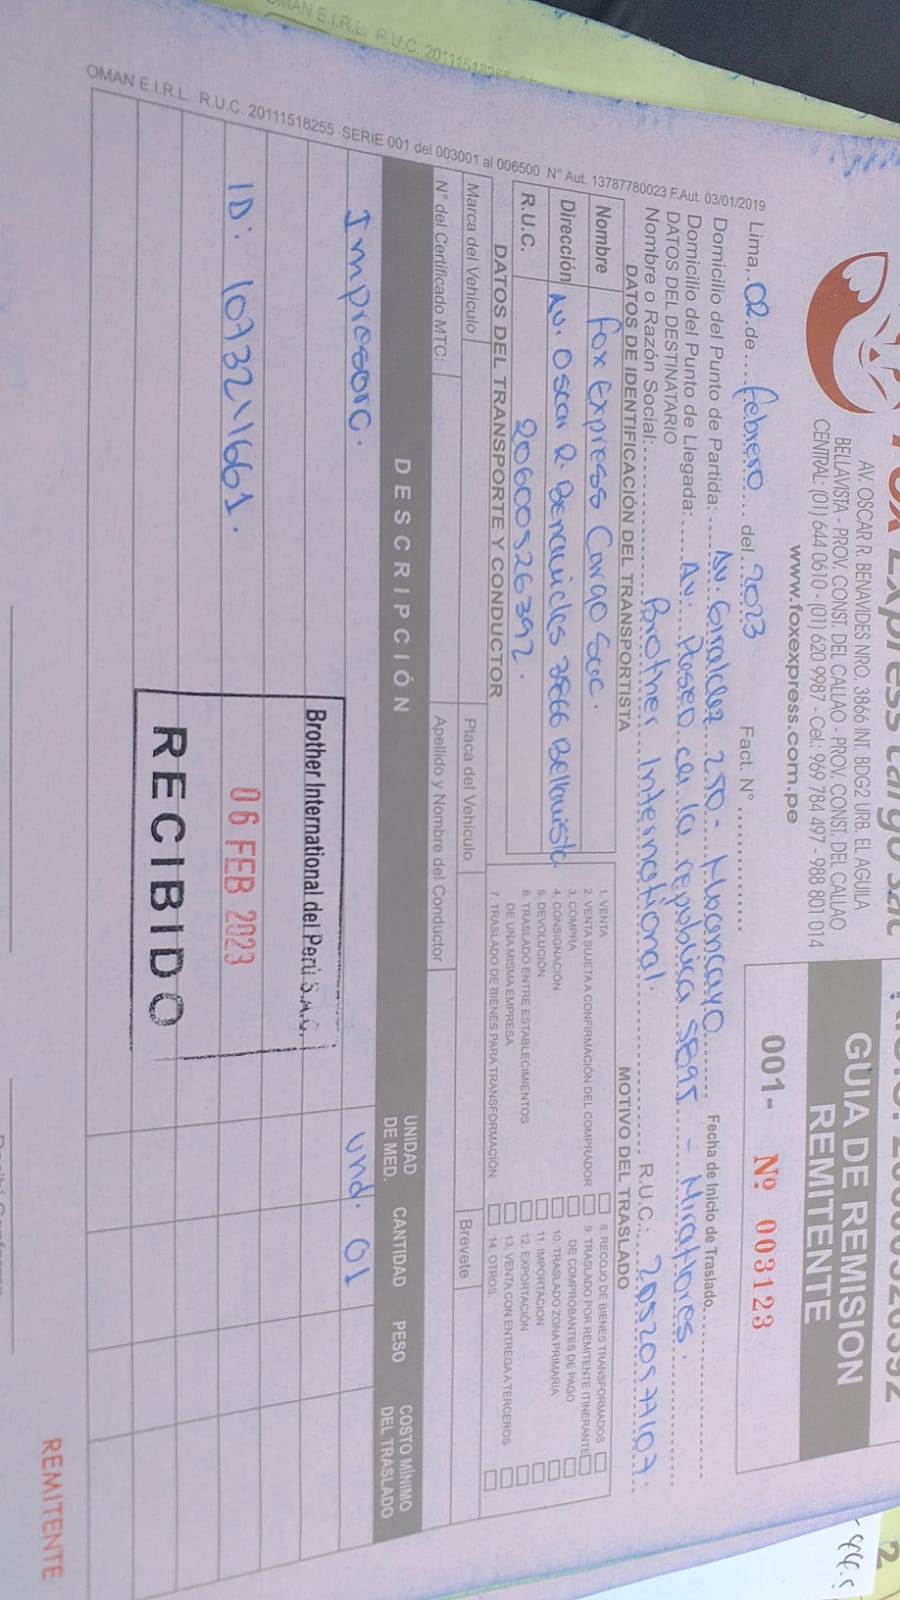 Fox Express Cargo sac
AV. OSCAR R. BENAVIDES NRO. 3866 INT. BDG2 URB. EL AGUILA
BELLAVISTA - PROV. CONST. DEL CALLAO - PROV. CONST. DEL CALLAO
CENTRAL: (01) 644 0610 - (01) 620 9987 - Cel.: 969 784 497 - 988 801 014
www.foxexpress.com.pe
GUIA DE REMISION
REMITENTE
001- Nº 003123
Lima, 02 de febrero del 2023 Fact. N°
Domicilio del Punto de Partida: Av. Giraldez 250 - Huancayo Fecha de Inicio de Traslado
Domicilio del Punto de Llegada: Av. Paseo de la republica 5895 - Miraflores.
DATOS DEL DESTINATARIO
Nombre o Razón Social: Brother International. R.U.C.: 20520577107.
DATOS DE IDENTIFICACIÓN DEL TRANSPORTISTA
Nombre Fox Express Cargo Sac.
Dirección Av. Oscar R. Benavides 3866 Bellavista.
R.U.C. 20600526392.
MOTIVO DEL TRASLADO
1. VENTA
2. VENTA SUJETA A CONFIRMACIÓN DEL COMPRADOR
3. COMPRA
4. CONSIGNACIÓN
5. DEVOLUCIÓN
6. TRASLADO ENTRE ESTABLECIMIENTOS
DE UNA MISMA EMPRESA
7. TRASLADO DE BIENES PARA TRANSFORMACIÓN
8. RECOJO DE BIENES TRANSFORMADOS
9. TRASLADO POR REMITENTE ITINERANTE
DE COMPROBANTES DE PAGO
10. TRASLADO ZONA PRIMARIA
11. IMPORTACION
12. EXPORTACIÓN
13. VENTA CON ENTREGA A TERCEROS
14. OTROS
DATOS DEL TRANSPORTE Y CONDUCTOR
Marca del Vehículo Placa del Vehículo Brevete
N° del Certificado MTC: Apellido y Nombre del Conductor
DESCRIPCIÓN UNIDAD DE MED. CANTIDAD PESO COSTO MÍNIMO DEL TRASLADO
Impresora. und. 01
Brother International del Perú S.A.C.
ID: 107321661.
06 FEB 2023
RECIBIDO
OMAN E.I.R.L. R.U.C. 20111518255 SERIE 001 del 003001 al 006500 N° Aut. 13787780023 F.Aut. 03/01/2019
REMITENTE
OMAN E.I.R.L. R.U.C. 20111518255